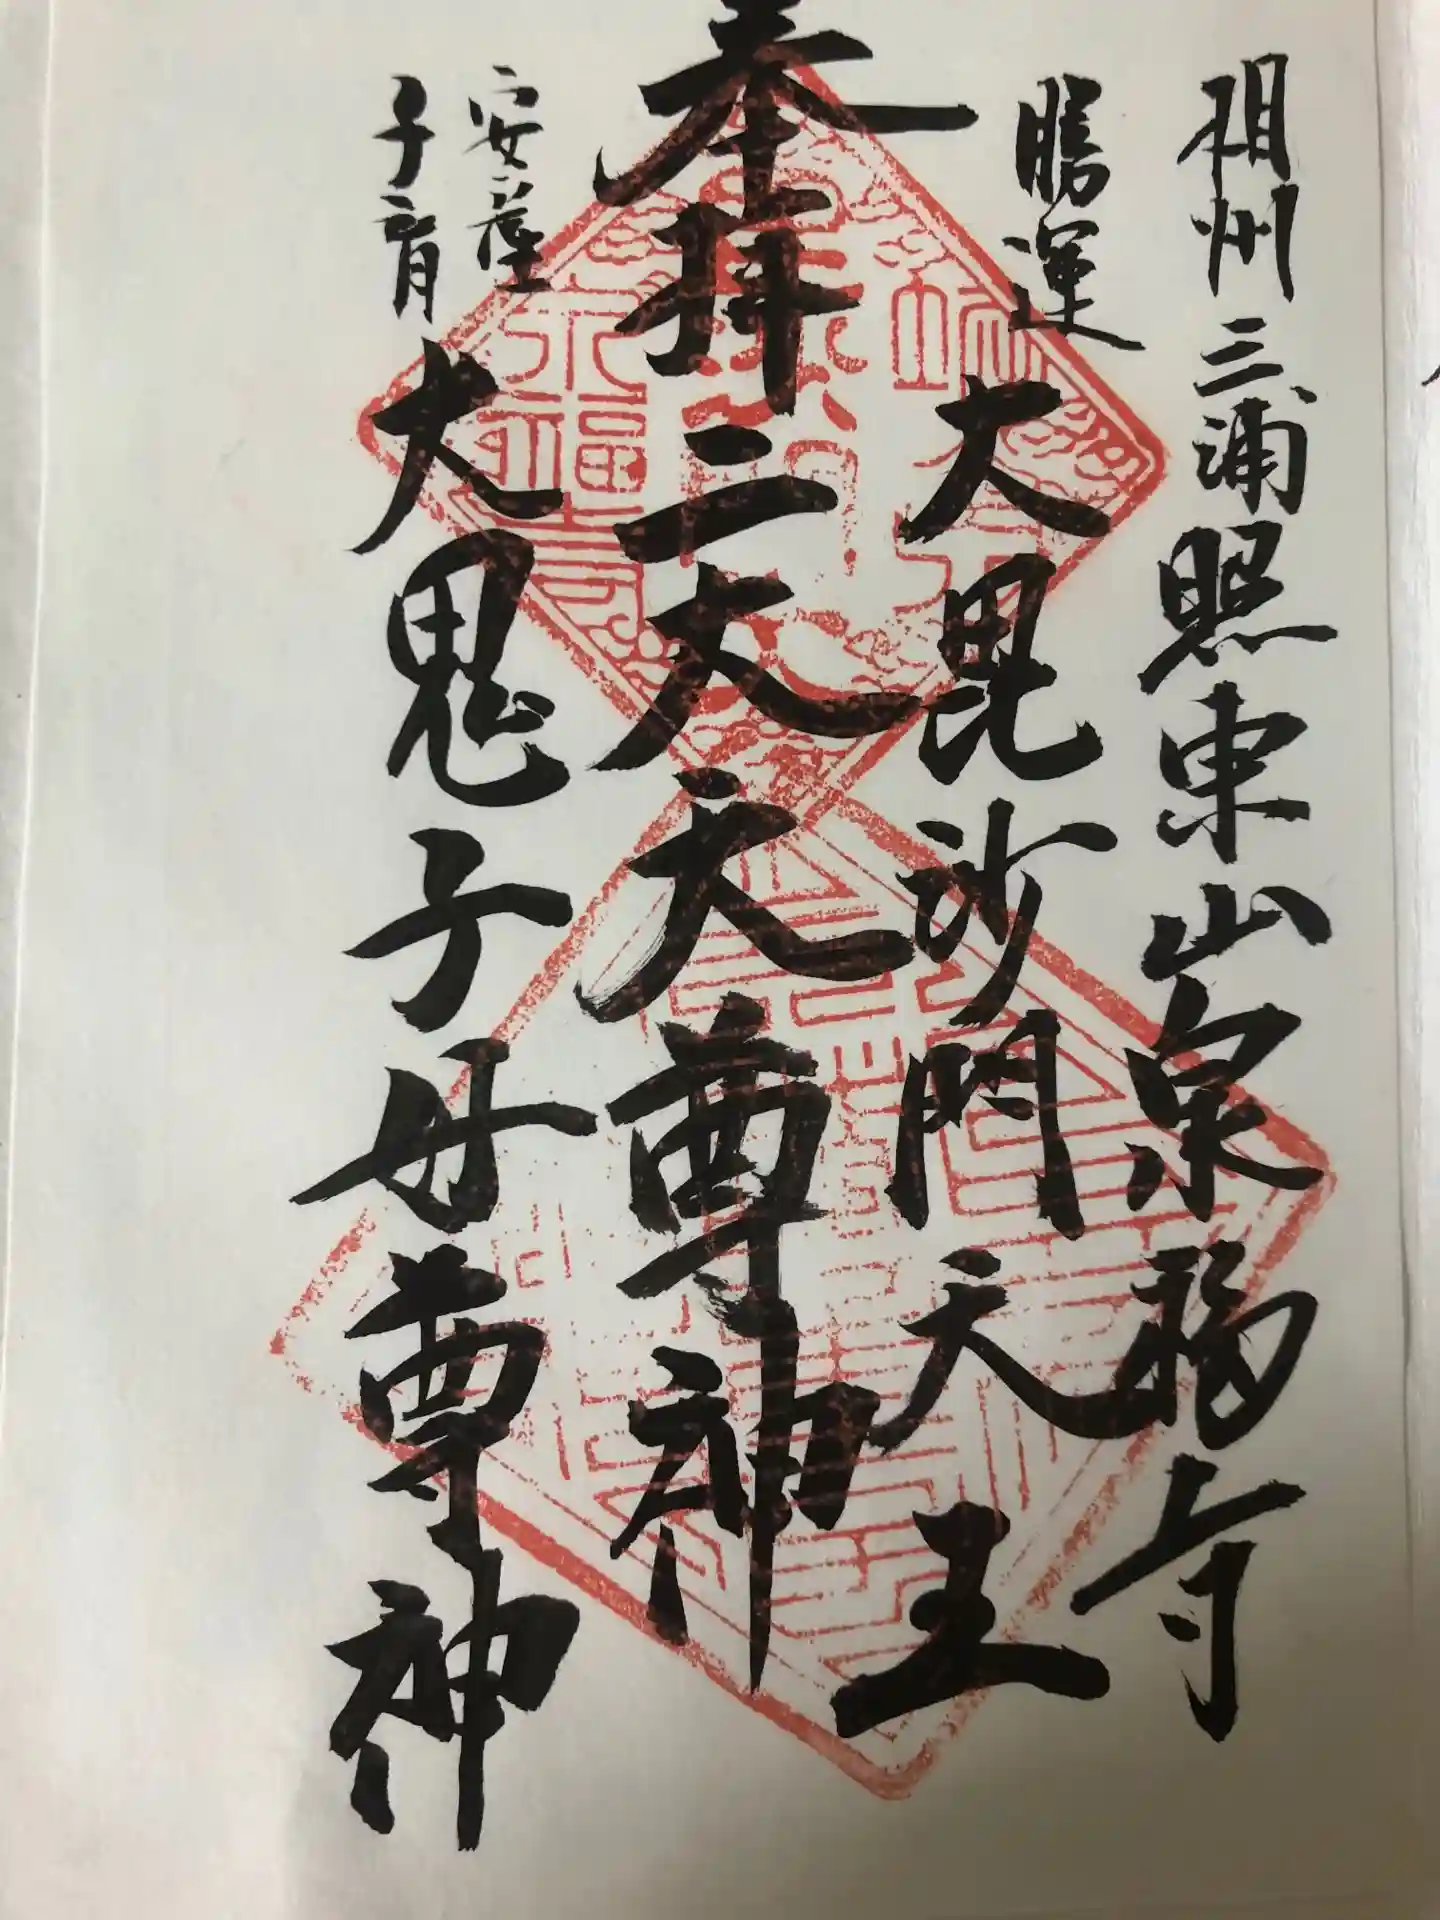 相州三浦照東山泉福寺
勝運 大毘沙門天王
奉拝 二大天尊神
安産
子育 大鬼子母尊神